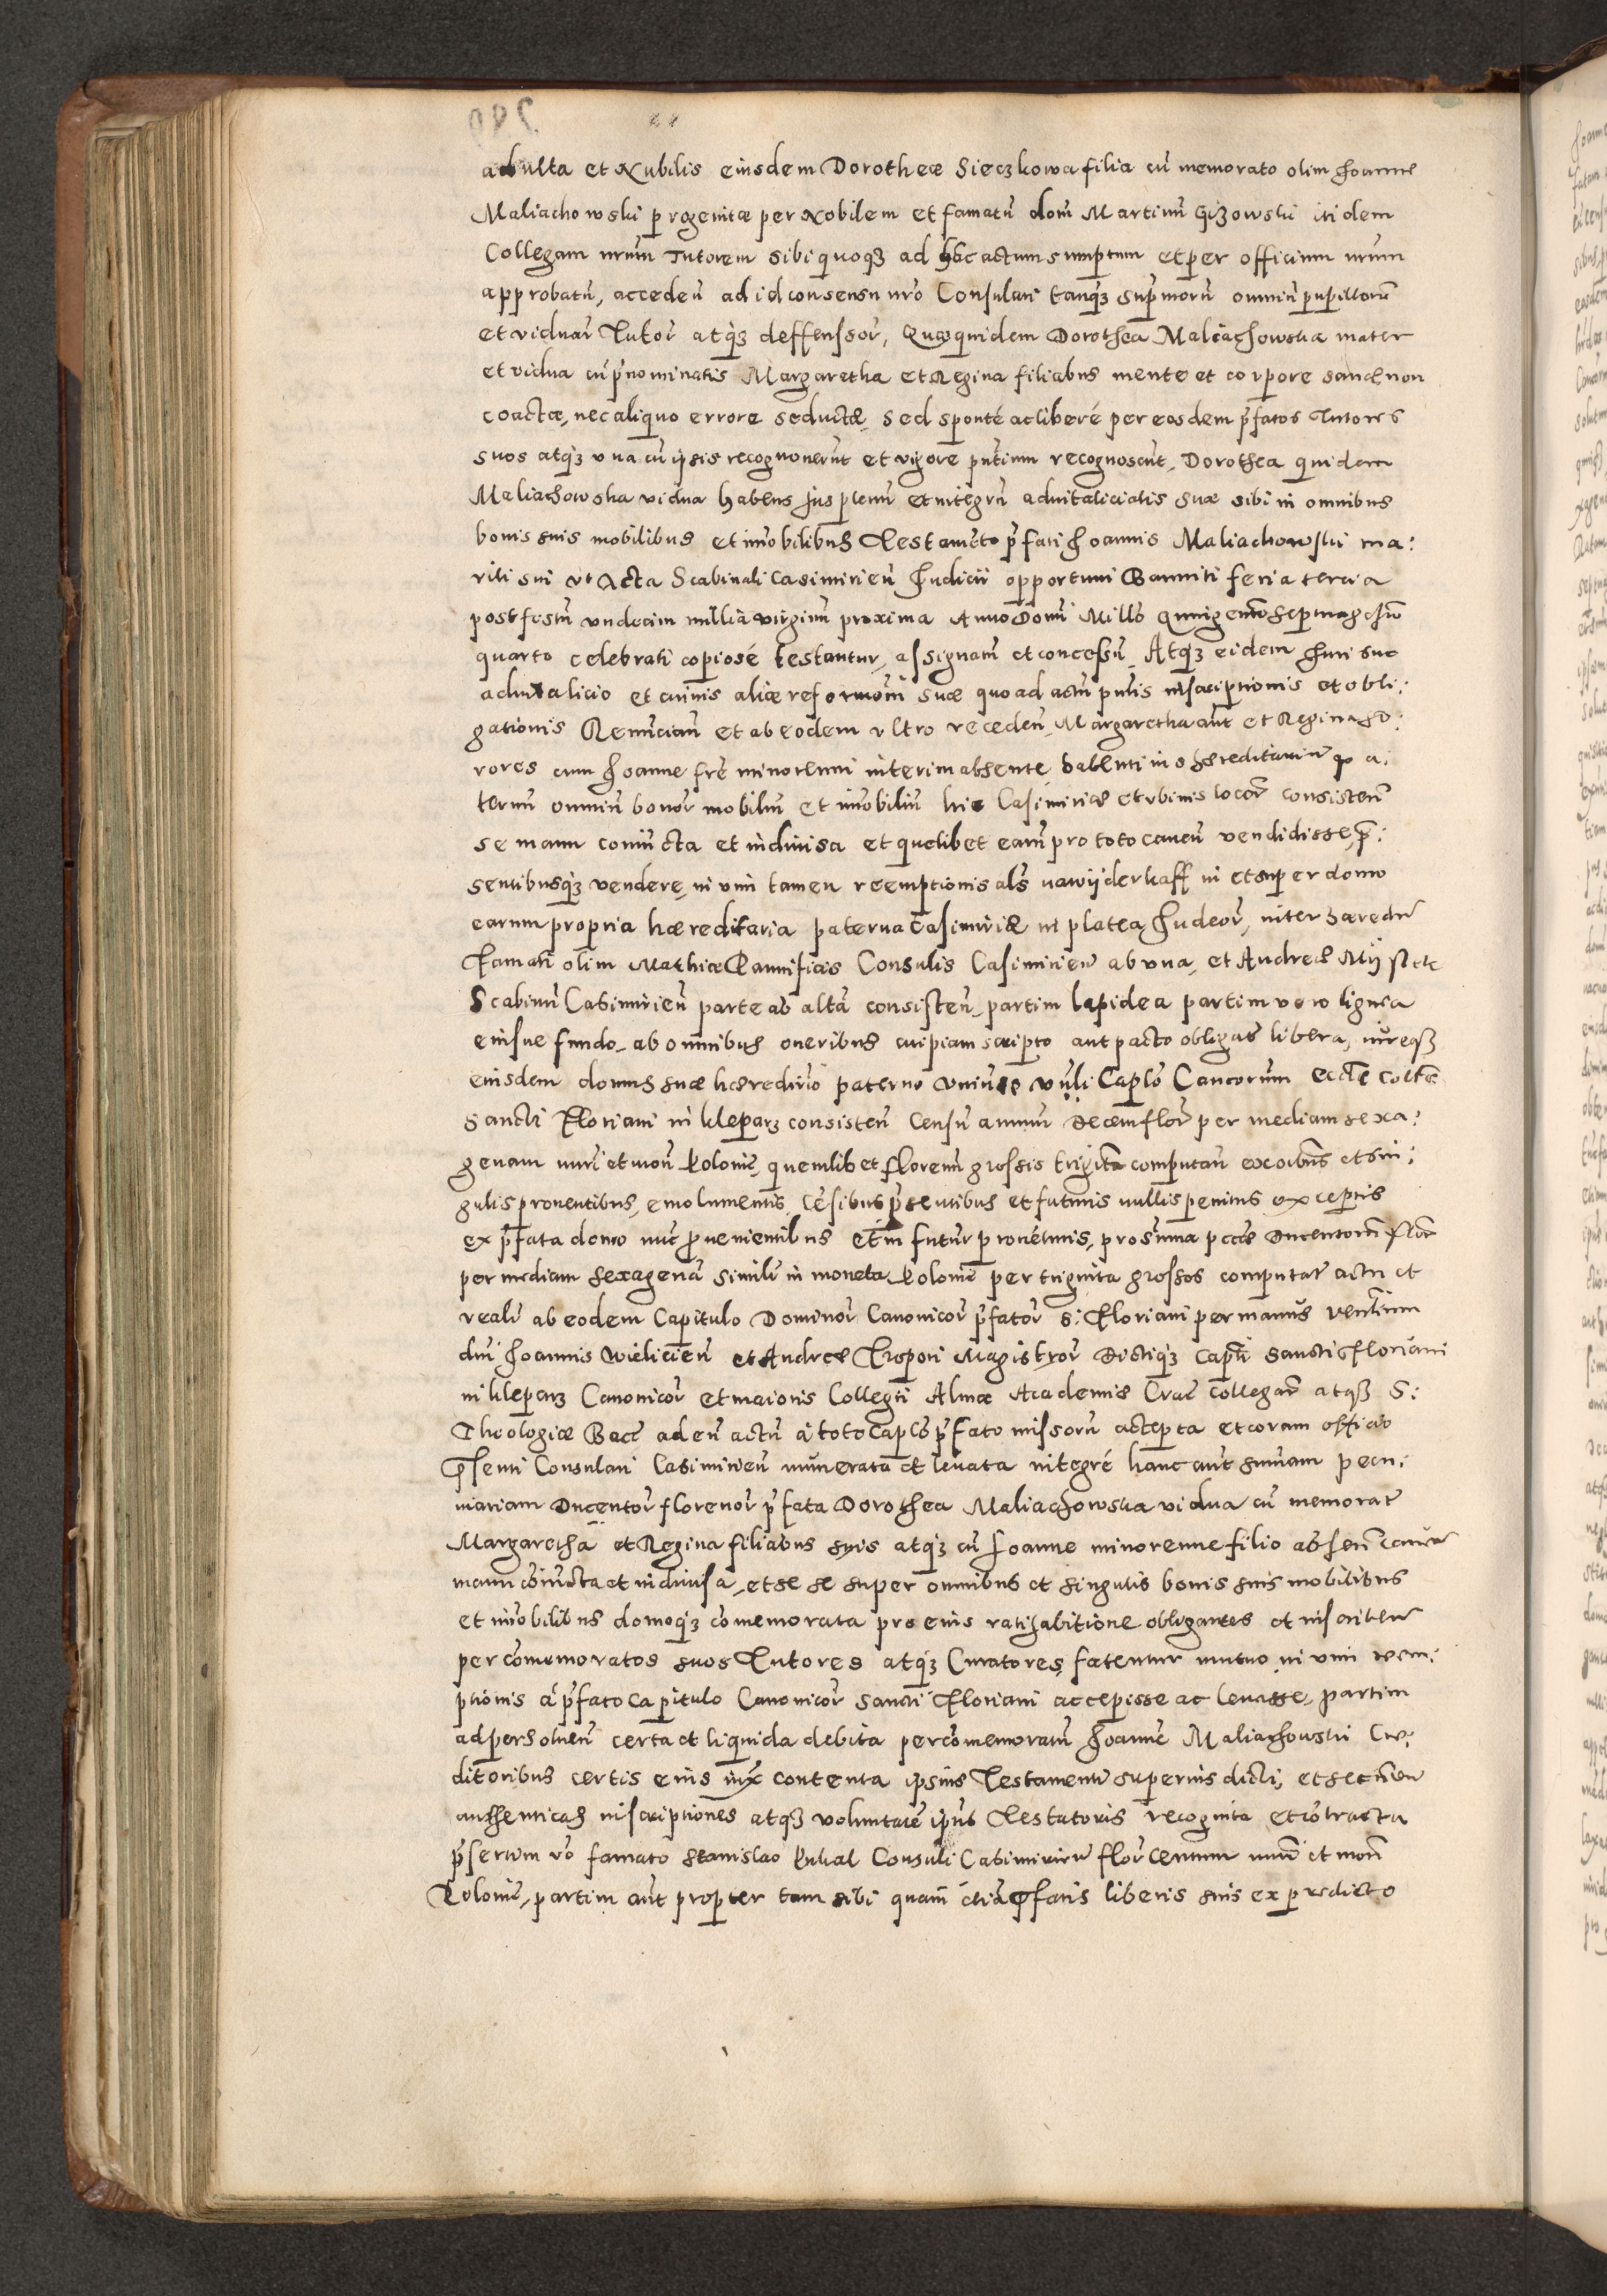 adulta et Nubilis eiusdem Dorotheæ Sieczkowa filia cũ memorato olim Joanne
Maliachowski progenitæ per Nobilem et famatũ dom̃ Martinũ Gizowski itidem
Collegam nrũm Tutorem sibi quoqȝ ad hũc actum sumptum et per officium nrum
approbatũ, acceden̄ ad id consensu nr̃o Consulari tanqȝ supr̃morũ omniũ pupillorũ
et viduar̃ Tutor̃ atqȝ deffensor̃, Quæquidem Dorothea Maliachowska mater
et vidua cũ pr̃nominatis Margaretha et Regina filiabus mente et corpore sanæ non
coactæ, nec aliquo errore seductæ, sed sponté ac liberé per eosdem pr̃fatos Tutores
suos atqȝ vna cũ ipsis recognouerũt et vigore pñtium recognoscũt, Dorothea quidem
Maliachowska vidua habens Jus plenũ et integrũ aduitalitiatis suæ sibi in omnibus
bonis suis mobilibus et im̃obilibus Testamẽto pr̃fati Joannis Maliachowski ma:
riti sui vt Acta Scabinali Casimirien̄ Judicii opportuni Banniti feria tercia
post festũ vndecim milliã virginũ proxima Anno Domi Millo Quingentosseptuagesio
quarto celebrati copiosé testantur, assignatũ et concessũ. Atqȝ eidem Juri suo
aduitalicio et cuiuis aliæ reformõni suæ quo ad actũ pñtis inscriptionis et obli:
gationis Renũcian̄ et ab eodem vltro receden̄, Margaretha aũt et Regina so:
rores cum Joanne frẽ minorenni interim absente habenti ius hæreditariũ pa:
ternũ omniũ bonor̃ mobiliũ et im̃obiliũ hic Casimiriæ et vbiuis locor̃ consisten̄
se manu coniũcta et indiuisa et quelibet earũ pro toto cauen̄ vendidisse, pr̃:
sentibusqȝ vendere, in vim tamen reemptionis als̃ nawijderkaff in et super domo
earum propria hæreditaria paterna Casimiriæ in platea Judeor̃, inter hæredũ
Famati olim Mathiæ Pannificis Consulis Casimirien̄ ab vna, et Andreæ
Scabinũ Casimirien̄ parte ab altã consisten̄, partim lapidea partim vero lignea
eiusue fundo, ab omnibus oneribus cuipiam scripto aut pacto obligat̃ libera, iureqȝ
eiusdem domus suæ hæredirio paterno vniuso Vñli Caplo Canc̃orum Eccl̃e Coll̃e
Sancti Floriani in kleparz consisten̄ Censũ annuũ decem flor̃ per mediam sexa:
genam num̃ et mon̄ Poloniæ, quemlibet florenũ grossis triginta computan̄ ex oĩbus et sin:
gulis prouentibus, emolumentis, cẽsibus pr̃sentibus et futuris nullis penitus exceptis
ex pr̃fata domo nũc prouenientibus et in futur̃ prouẽturis, pro sũma pecc̃ Ducentorũ flor̃
per mediam sexagenã similĩ in moneta Poloniæ per triginta grossos computat̃ actu et
realĩ ab eodem Capitulo Dominor̃ Canonicor̃ pr̃fator̃ S: Floriani per manus Ven̄lium
dnĩ Joannis Wielicien̄ et Andreæ Magistror̃ dictiqȝ Capl̃i Sancti Floriani
in kleparz Canonicor̃ et maioris Collegii Almæ Academiæ Crac̃ Collegar̃ atqȝ S:
Theologiæ Bacc̃ ad eũ actũ á toto Caplo pr̃fato missorũ accepta et coram offic̃io
pr̃senti Consulari Casimirien̄ numerata et leuata integré hanc aũt sum̃am pecu:
niariam Ducentor̃ florenor̃ pr̃fata Dorothea Maliachowska vidua cũ memorat̃
Margaretha et Regina filiabus suis atqȝ cũ Joanne minorenne filio absen̄
manu cõiũcta et indiuisa, et se se super omnibus et singulis bonis suis mobilibus
et im̃obilibus domoqȝ com̃emorata pro eius ratihabitione obligantes et inscriben̄
per com̃emoratos suos Tutores atqȝ Curatores, fatentur mutuo in vim reem:
ptionis á pr̃fato Capitulo Canonicor̃ Sancti Floriani accepisse ac leuasse, partim
ad persoluen̄ certa et liquida debita per com̃emoratũ Joannẽ Maliachowski Cre:
ditoribus certis eius iux̃ contenta ipsius Testamenti superius dicti, et secundũ
authenticas inscriptiones atqȝ voluntatẽ ipius Testatoris recognita et cõtracta
pr̃sertim vo famato Stanislao Consuli Casimirien̄ flor̃ centum num̃ et mon̄
Poloniæ, partim aũt propter tam sibi quam etiã pr̃fatis liberis suis ex predicto